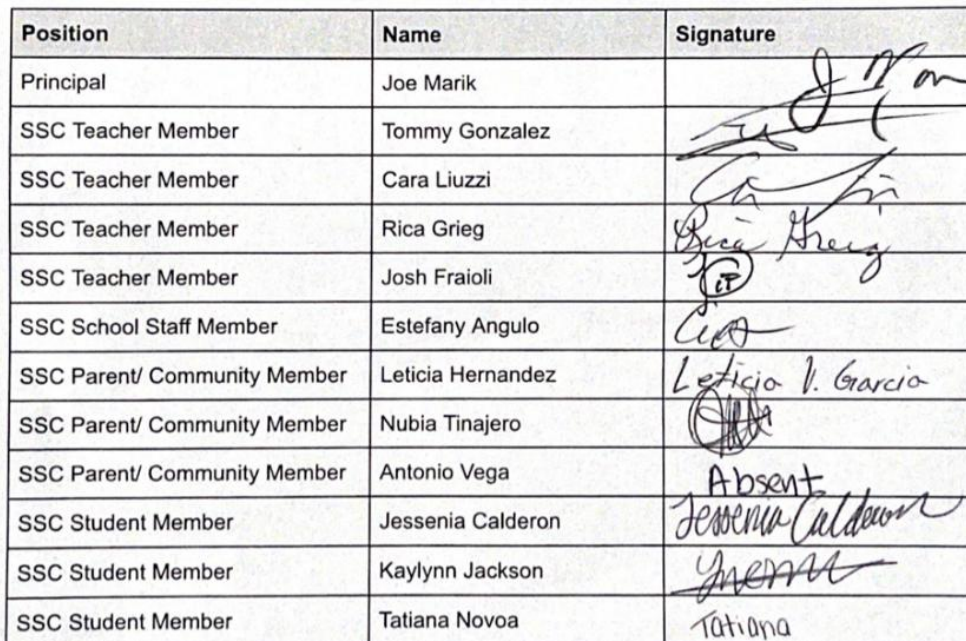 Position Name Signature
Principal Joe Marik
SSC Teacher Member Tommy Gonzalez
SSC Teacher Member Cara Liuzzi
SSC Teacher Member Rica Grieg Rica Greig
SSC Teacher Member Josh Fraioli
SSC School Staff Member Estefany Angulo
SSC Parent/ Community Member Leticia Hernandez Leticia V. Garcia
SSC Parent/ Community Member Nubia Tinajero
SSC Parent/ Community Member Antonio Vega Absent
SSC Student Member Jessenia Calderon Jessenia Calderon
SSC Student Member Kaylynn Jackson
SSC Student Member Tatiana Novoa Tatiana